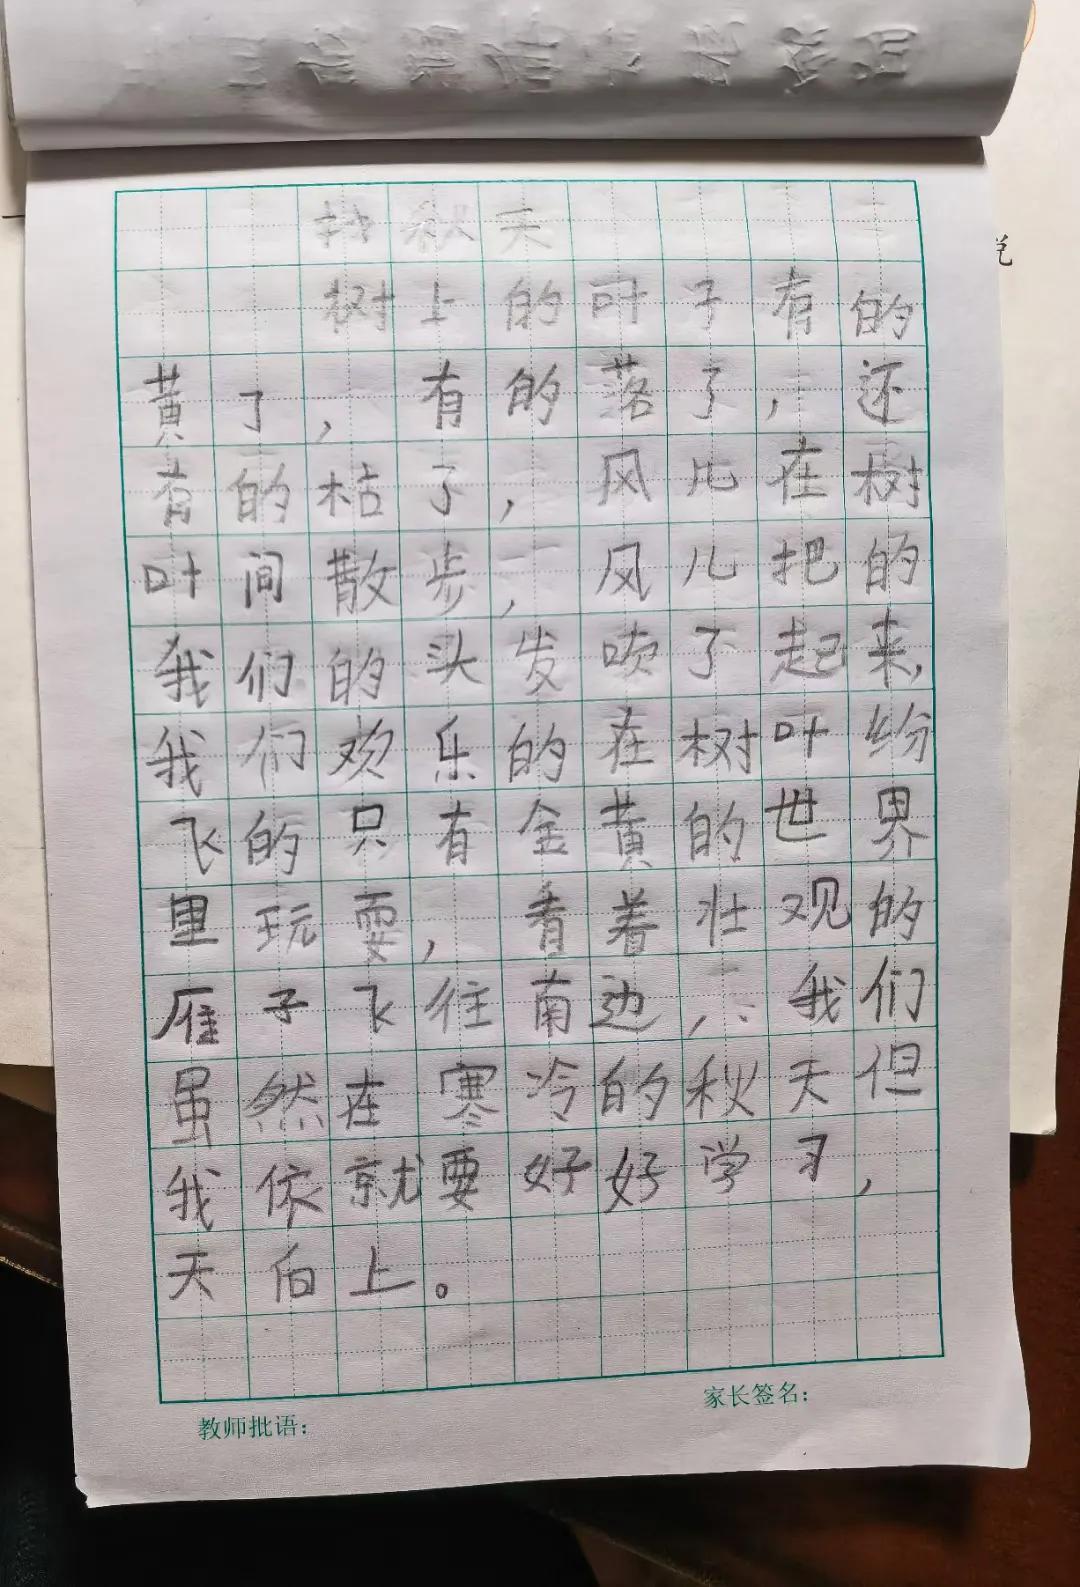 找秋天
树上的叶子有的
黄了，有的落了，还
有的枯了，风儿在树
叶间散步，风儿把的
我们的头发吹了起来，
我们欢乐的在树叶纷
飞的只有金黄的世界
里玩耍，看着壮观的
雁子飞往南边，我们
虽然在寒冷的秋天但
我依就要好好学习，
天向上。
家长签名：
教师批语：